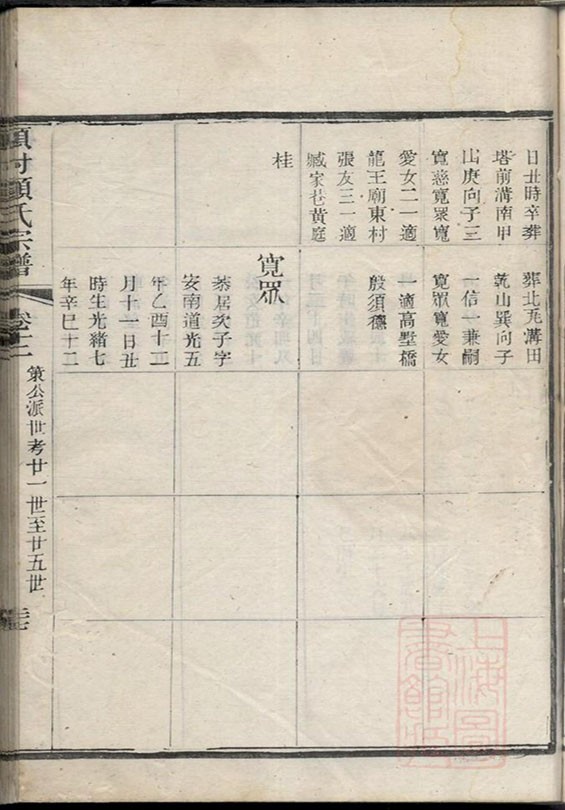 日丑時辛葬
塔前溝南甲
山庚向子三
寬慈寬眾寬
愛女二一適
龍王廟東村
張友三一適
臧家巷黃庭
桂
葬北瓦溝田
乾山巽向子
一信一兼嗣
寬眾寬愛女
一適高墅橋
殷須德
寬眾
棻居次子字
安南道光五
年乙酉十二
月十一日丑
時生光緒七
年辛巳十二
項村顧氏宗譜
卷十二
策公派世考廿一世至廿五世
上海圖書館藏